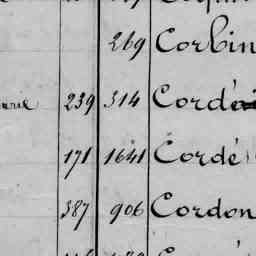 269 Corbin
239 314 Cordé
171 1641 Cordé
387 906 Cordon